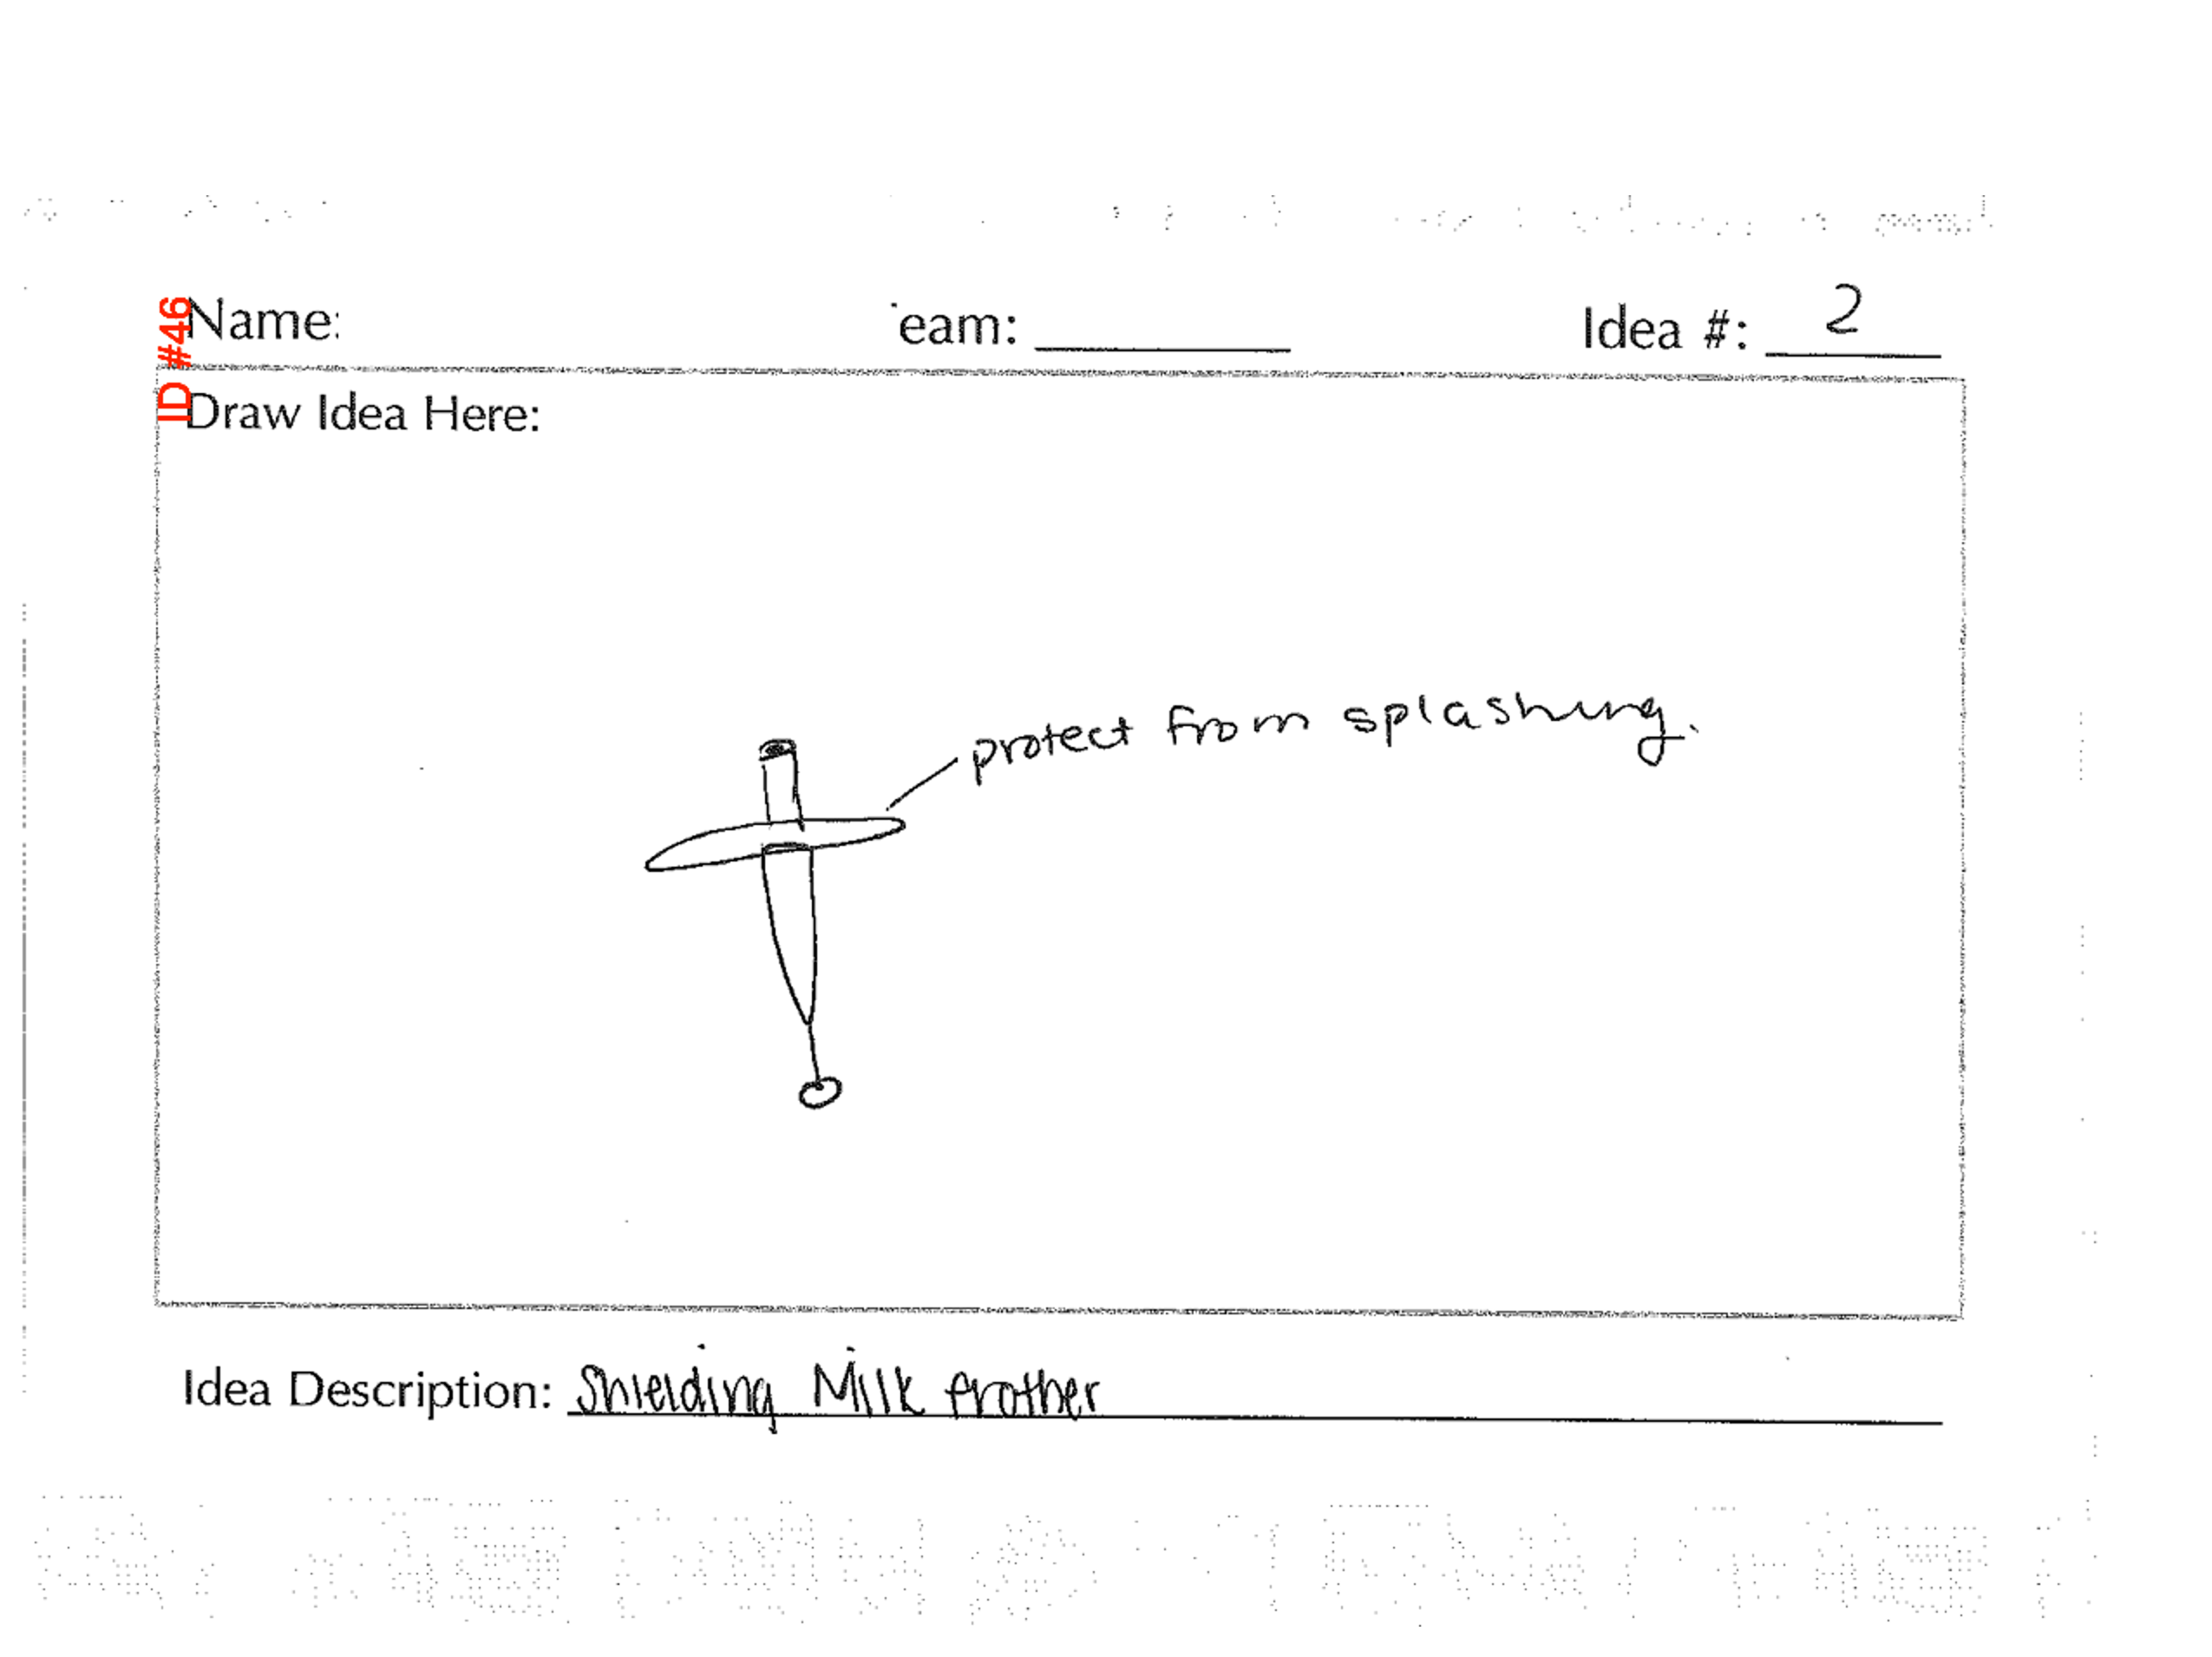 ID #46
Name:
eam:
Idea #: 2
Draw Idea Here:
protect from splashing.
Idea Description: Shielding Milk frother